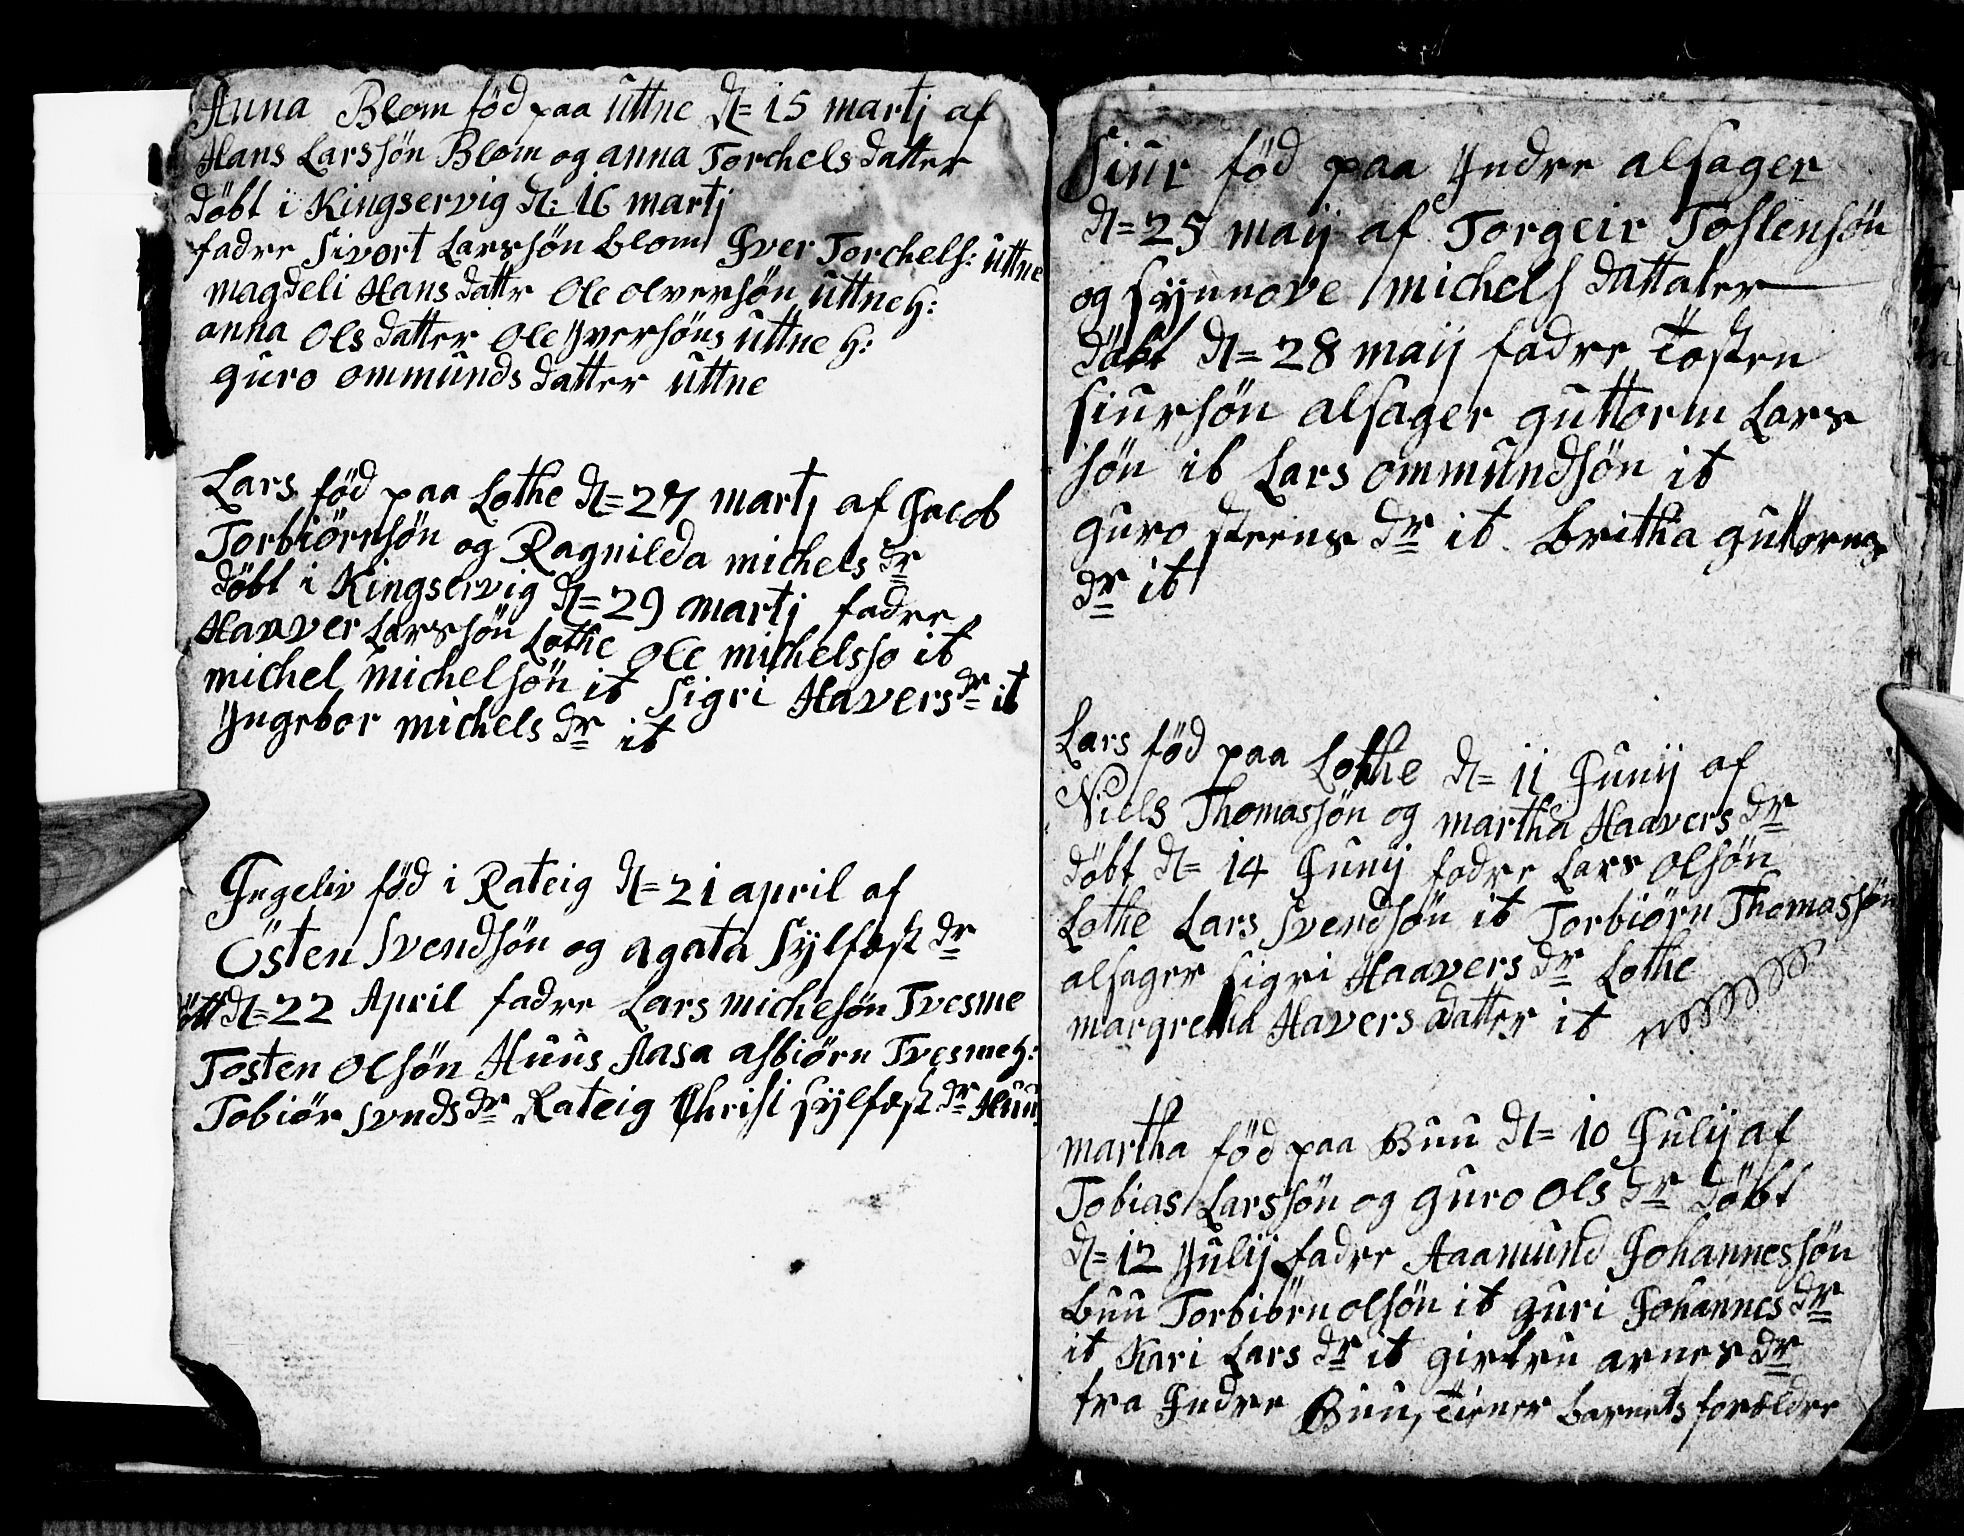 Anna Blom föd paa Uttne d= 15 martj af
Hans Larssön Blom og anna Torchels datter
döbt i Kingservig d: 16 martj
fadre Sivort Larssön blom Iver Torchels: Uttne
magdeli Hans dattr Ole olversön Uttne h:
anna Ols datter Ole Yversöns Uttne h:
guro ommunds datter Uttne
Lars föd paa Lothe d= 27 martj af Jacob
Torbiörnsön og Ragnilda michels dr
döbt i Kingservig d= 29 martj fadre
Havver Larssön Lothe Ole michelsso it
michel michelsön it Sigri Havers dr it
Yngebor michels dr it
Ingeliv föd i Rateig d= 21 april af
Östen Svendsön og agata Sylfæst dr
d= 22 April fadre Lars michelsön Tvesme
Tosten Olsön Huus Aasa asbiörn Tvesme h:
Tobiör Svnds dr Rateig Christi Sylfæst dr Huus
Siur föd paa Yndre alsager
d= 25 maij af Torgeir Toslensön
og Synnove michels dattater
döbt d= 28 maij fadre Tosten
siursön alsager guttorm Lars
sön it Lars ommundsön it
guro steens dr it britha guttorms
dr it
Lars föd paa Lothe d= 11 Junij af
Niels Thomassön og martha Haavers dr
döbt d= 14 Junij fadre Lars Olsön
Lothe Lars Svendsön it Torbiörn Thomassön
alsager Sigri Haavers dr Lothe
margretha Havers datter it
martha föd paa Buu d= 10 Julij af
Tobias Larssön og guro Ols dr döbt
d= 12 Julij fadre Aaamund Johannessön
buu Torbiörn olsön it guri Johannes dr
it Kari Lars dr it girtru arnes dr
fra Indre Buu, tiener barnets forældre